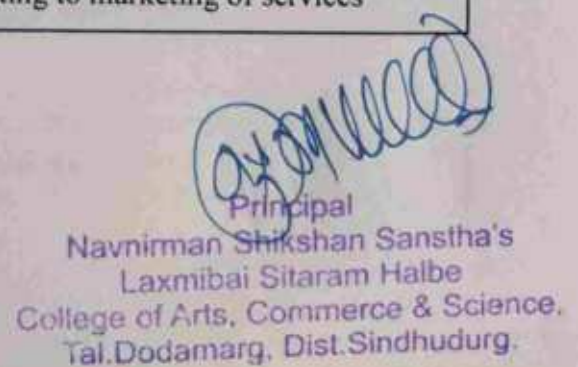 to marketing of services
Principal
Navnirman Shikshan Sanstha's
Laxmibai Sitaram Halbe
College of Arts, Commerce & Science,
Tal.Dodamarg, Dist.Sindhudurg.